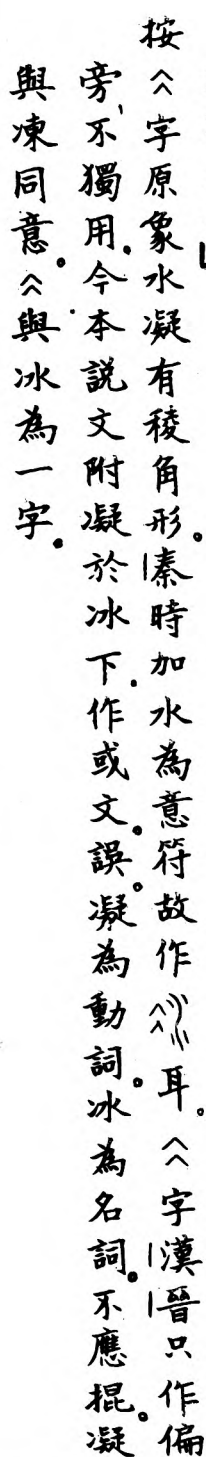 按仌字原象水凝有稜角形。秦時加水為意符故作冰耳。仌字漢晉只作偏
旁、不獨用。今本說文附凝於冰下。作或文。誤。凝為動詞。冰為名詞。不應掍。凝
與凍同意。仌與冰為一字。